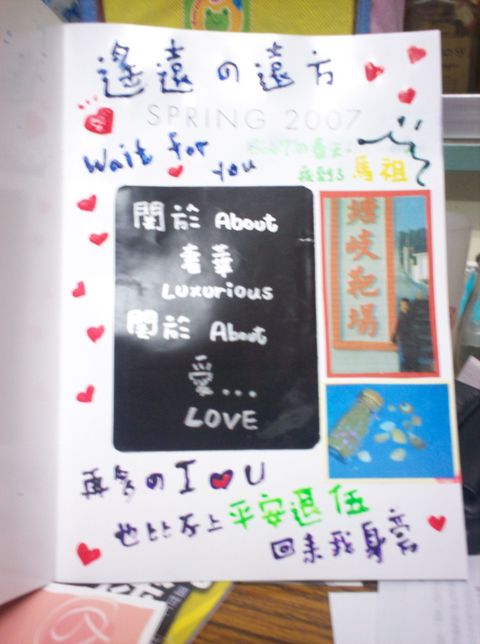 遙遠の遠方
SPRING 2007
Wait for you
2007の春天
我到了馬祖
關於 About
奢華
Luxurious
關於 About
愛...
LOVE
塘岐靶場
再多の I ♥ U
也比不上平安退伍
回來我身旁